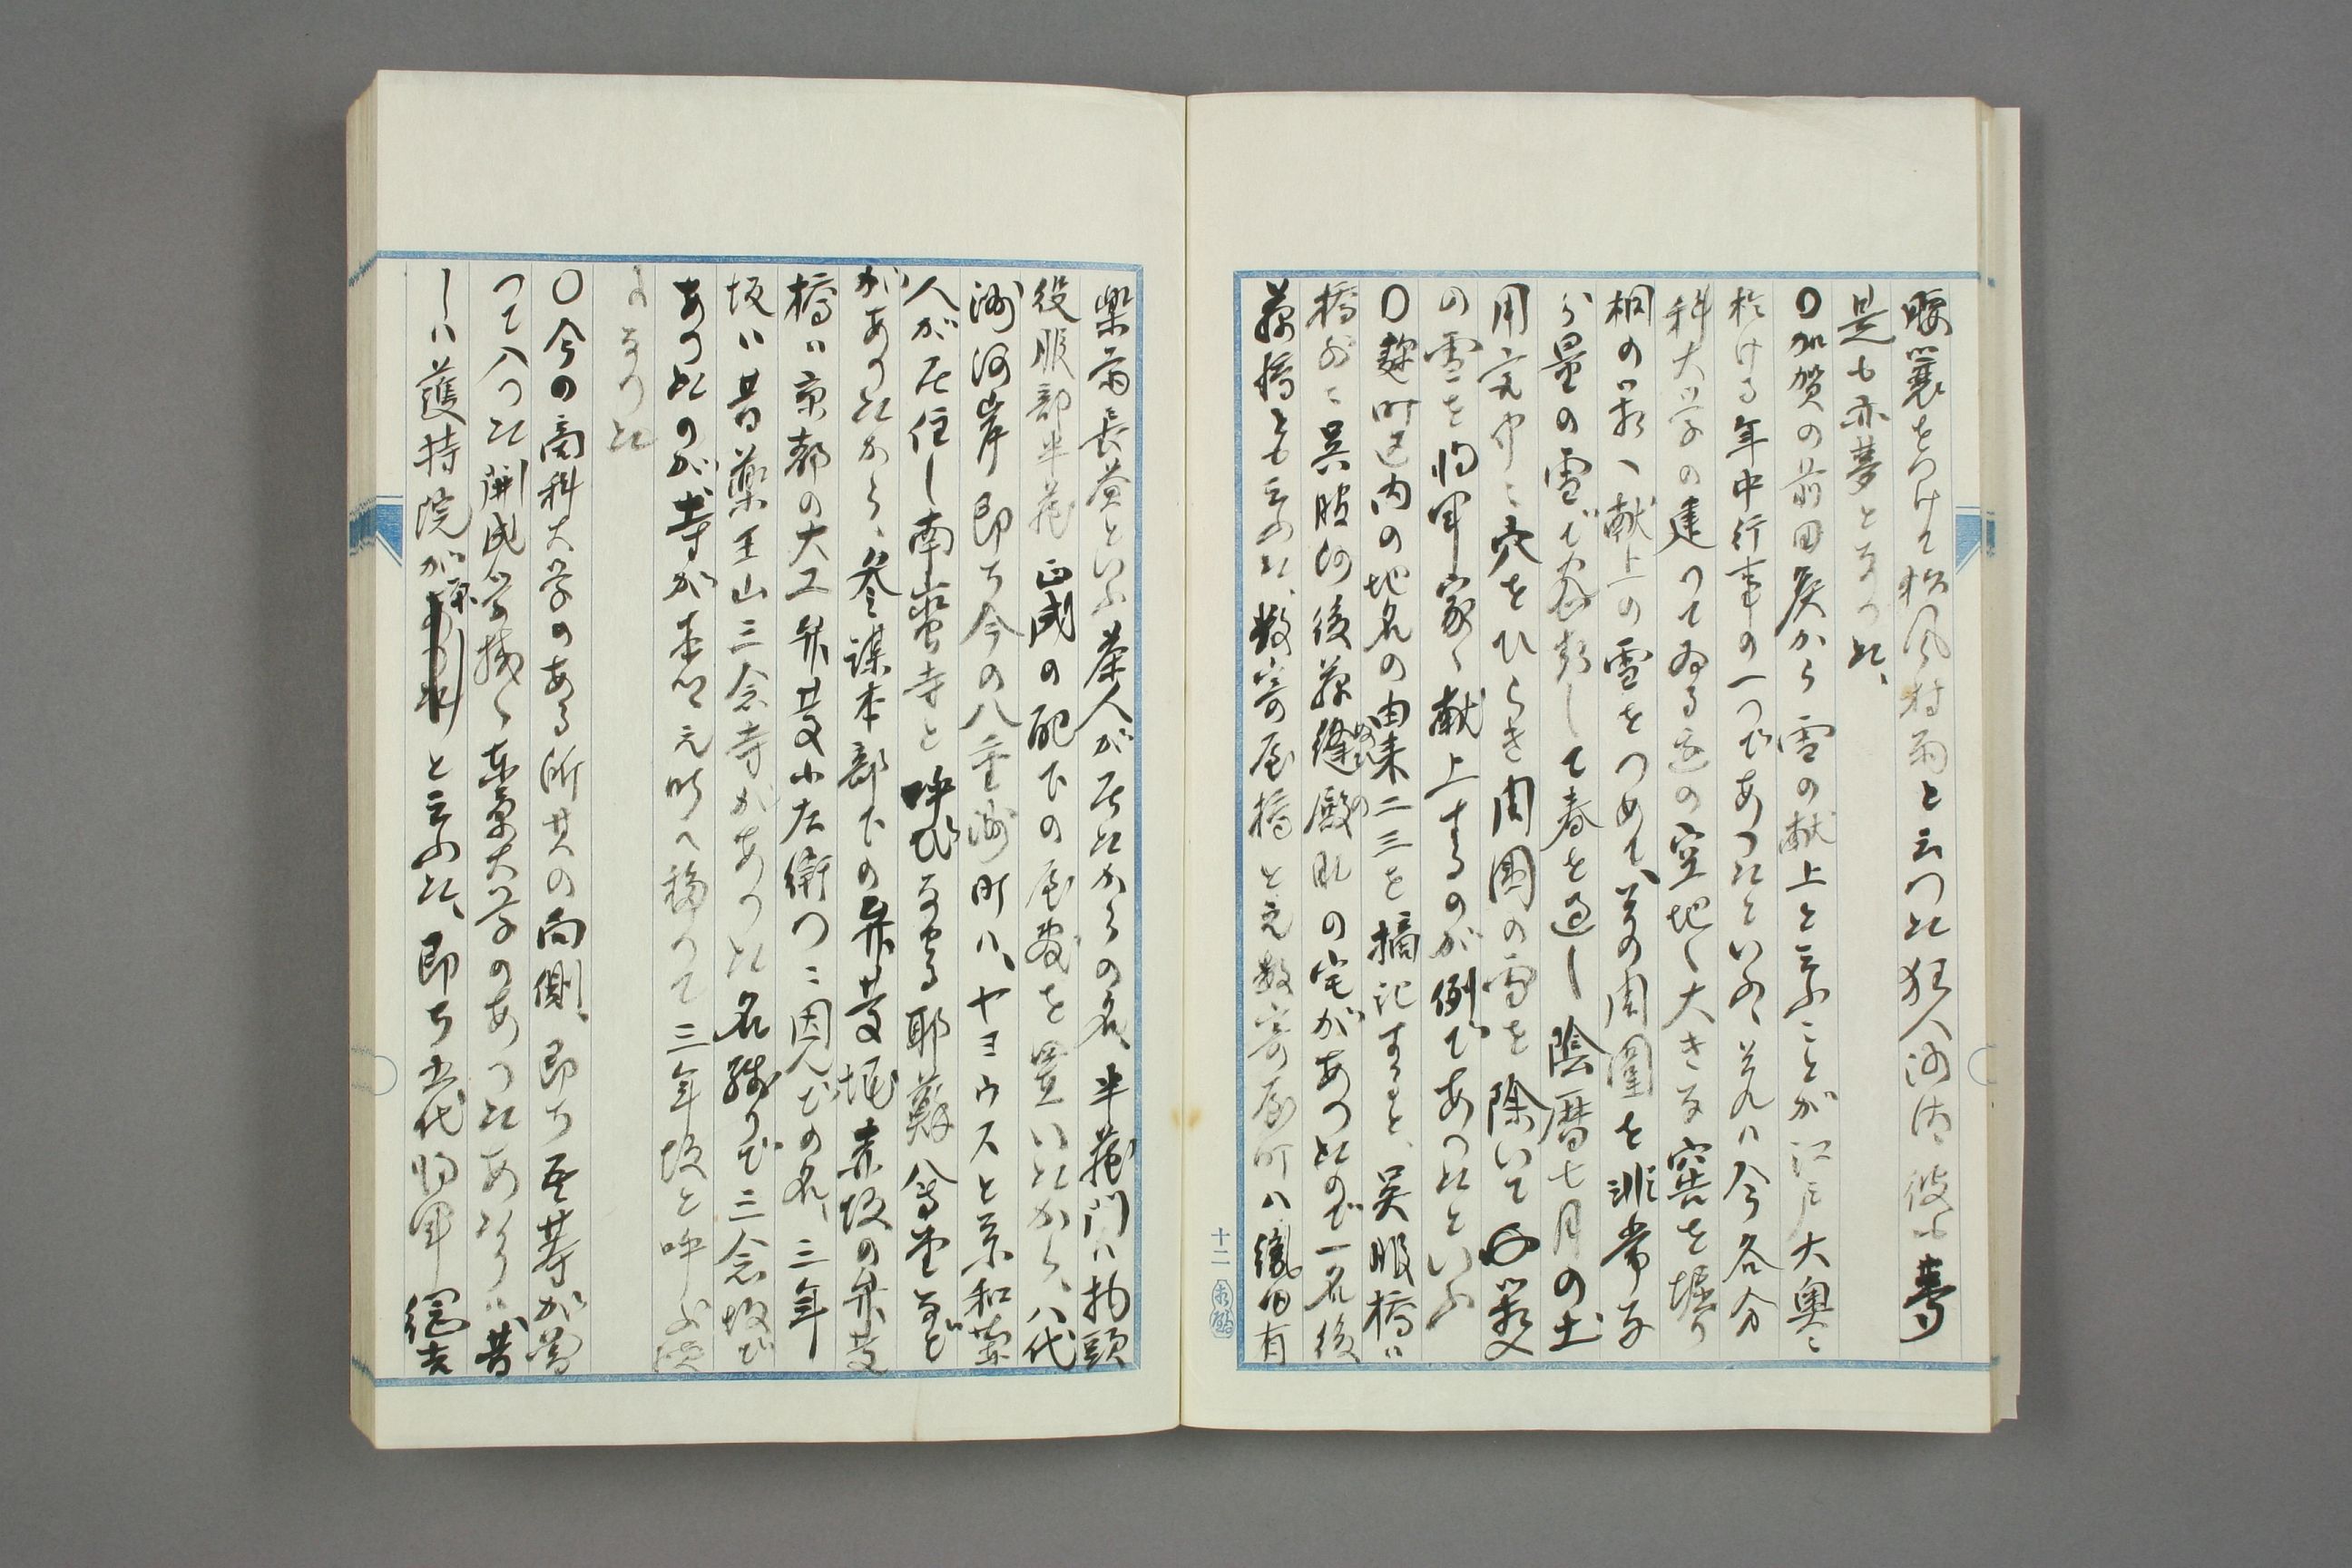 腰簑をつけて松風村雨と云つた狂人沙汰彼も夢
是も亦夢となつた、
〇加賀の前田侯から雪の献上と云ふことが江戸大奥に
於ける年中行事の一つであつたといふ、夫れハ今各分
科大学の建つてゐる辺の空地へ大きな窖を堀り
桐の箱へ献上の雪をつめて、其の周囲を非常な
分量の雪で して春を過し陰暦七月の土
用究中に穴をひらき周囲の雪を除いて箱
の雪を将軍家へ献上するのが例であつたといふ
〇麹町区内の地名の由来二三を摘記すると、呉服橋ハ
橋外に呉服師後藤縫殿の宅があつたので一名後
藤橋とも云ふた、数寄屋橋と元数寄屋町ハ織田有
楽斎長益といふ茶人が居たからの名、半蔵門ハ物頭
役服部半蔵正成の配下の屋敷を置いたから、八代
洲河岸即ち今の八重洲町ハ、ヤヨウスと云ふ和蘭
人が居住し南蛮寺と呼びなせる耶蘇会堂など
があつたから、参謀本部下の弁慶堀赤坂の弁慶
橋ハ京都の大工弁慶小左衛門に因んだの名、三年
坂ハ昔薬王山三念寺があつた名残りで三念坂で
あつたのが寺が本郷元町へ移つて三年坂と呼ぶ様
になつた
〇今の商科大学のある所其の向側、即ち 等が嘗
つて入つた開成学校、東京大学のあつたあたりハ昔
しハ護持院が原と云ふた、即ち五代将軍綱吉
十二